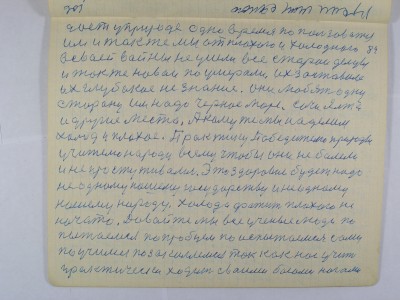 дает у природе одно время по пользоваться
им и также мы от плохого и холодного 84
всеает вайны не умели все старое дешево
и также новое по умирали их заставило
их глубокое не знание. Они любят одну
сторону им надо Черное море. Сочи Ялта
и другие места. А кому те мы наделим
холод и плохое. Практику Победителю природы
учителю народу всему чтобы они не болели
и не простуживались. Это здоровие будет надо
не одному нашему государству и не одному
нашему народу. Холода хватит плохого не
начато. Давайте мы все ученые люди по
пытаемся по пробуем по испытаемся сами
по учимся по закаляемся так как нас учит
практически ходить своими босыми ногами